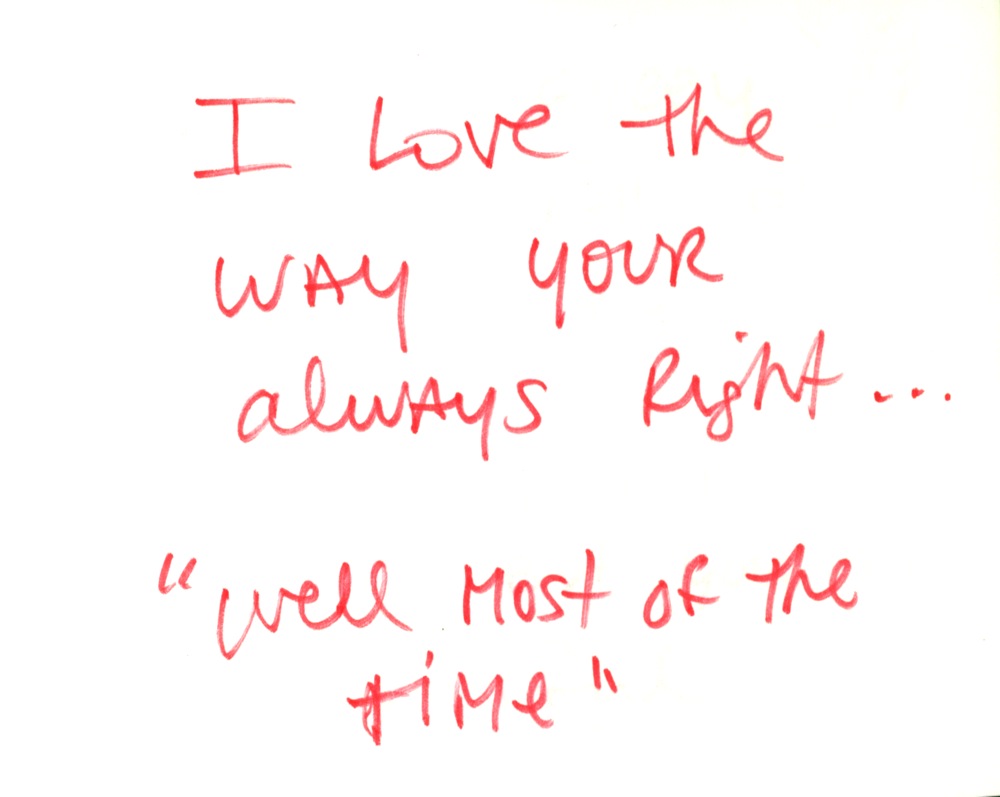 I Love the
WAY YOUR
alwAys Right...
"well Most of the
time"